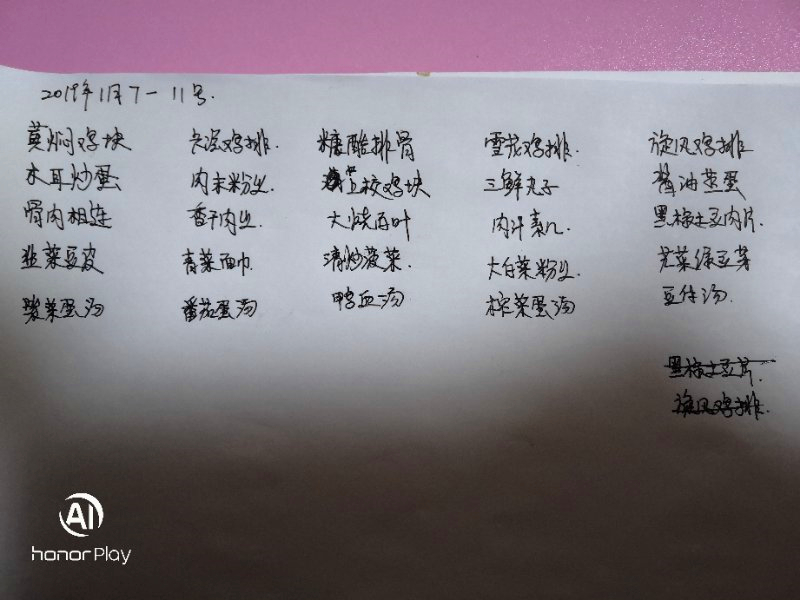 2019年1月7-11号.
黄焖鸡块 大漠鸡排. 糖醋排骨 雪花鸡排. 旋风鸡排
木耳炒蛋 肉末粉丝 上校鸡块 三鲜丸子 酱油荷蛋
骨肉相连 香干肉丝 大烧百叶 肉汁素几 黑椒土豆肉片
韭菜豆皮 青菜面巾 清炒菠菜. 大白菜粉丝 芹菜绿豆芽
紫菜蛋汤 番茄蛋汤 鸭血汤 榨菜蛋汤 豆件汤.
黑椒土豆片.
旋风鸡排.
AI
honor Play